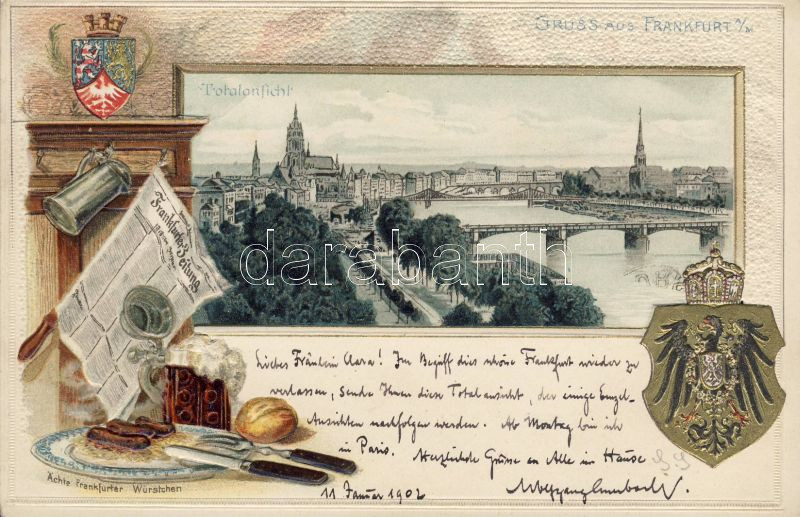 GRUSS AUS FRANKFURT a/M
Totalansicht
Frankfurter Zeitung
darabanth
Liebes Fräulein Clara! Im Begriff dies schöne Frankfurt wieder zu
verlassen, sende Ihnen diese Totalansicht, der einige Einzel-
Ansichten nachfolgen werden. Ab Montag bin ich
in Paris. Herzliche Grüsse an Alle im Hause
11 Januar 1902
Wolfgang
Ächte Frankfurter Würstchen